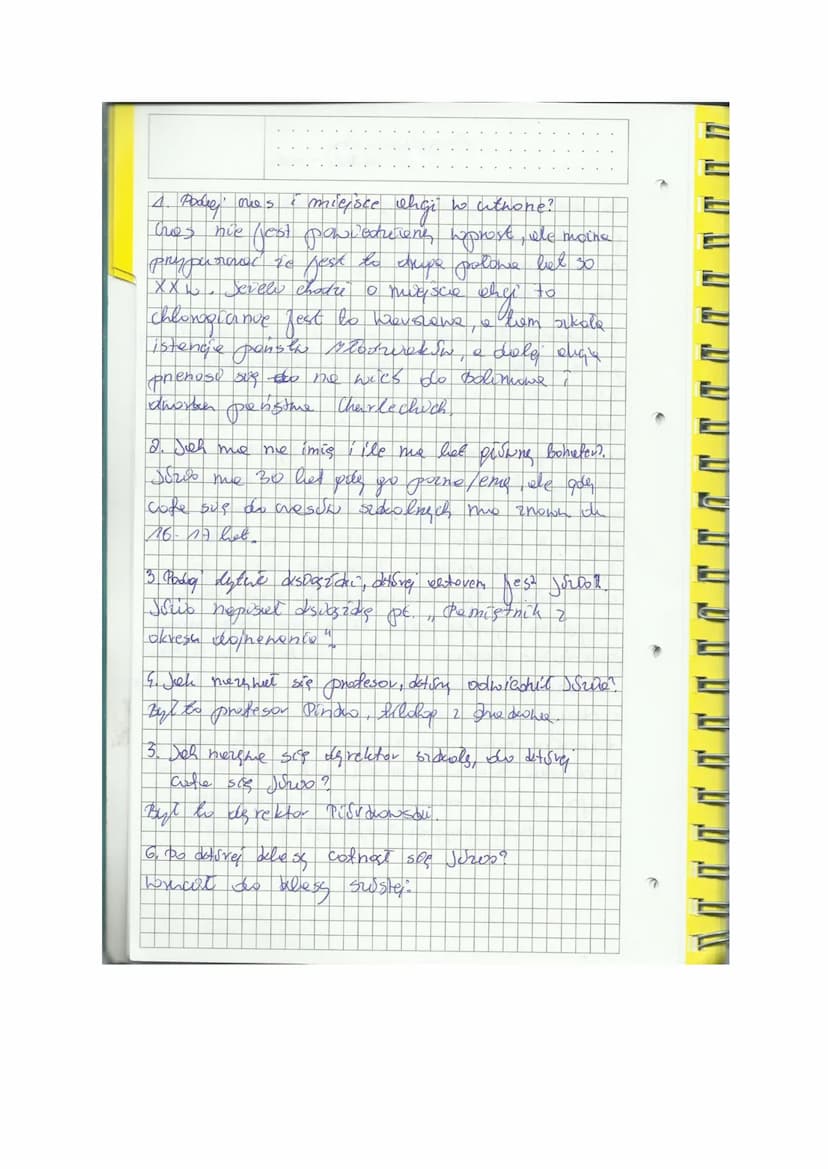 1. Podaj czas i miejsce akcji w utworze?
Czas nie jest powiedziany wprost, ale można
przypuszczać że jest to druga połowa lat 30
XXw. Jeżeli chodzi o miejsce akcji to
jest to Warszawa, a tam szkoła
państwa Młodziaków, a dalej akcja
przenosi się do na wieś do Bolimowa i
dworku państwa
2. Jak ma na imię i ile ma lat główny bohater?
Józio ma 30 lat gdy go poznajemy, ale gdy
cofa się do czasów szkolnych ma znowu ok
16-17 lat.
3. Podaj tytuł książki, której autorem jest Józio?
Józio napisał książkę pt. "Pamiętnik z
okresu dojrzewania".
4. Jak nazywał się profesor, który odwiedził Józia?
Był to profesor Pimko, filolog z
5. Jak nazywa się dyrektor szkoły, do której
cofa się Józio?
Był to dyrektor Piórkowski.
6. Do której klasy cofnął się Józio?
Wrócił do klasy szóstej.